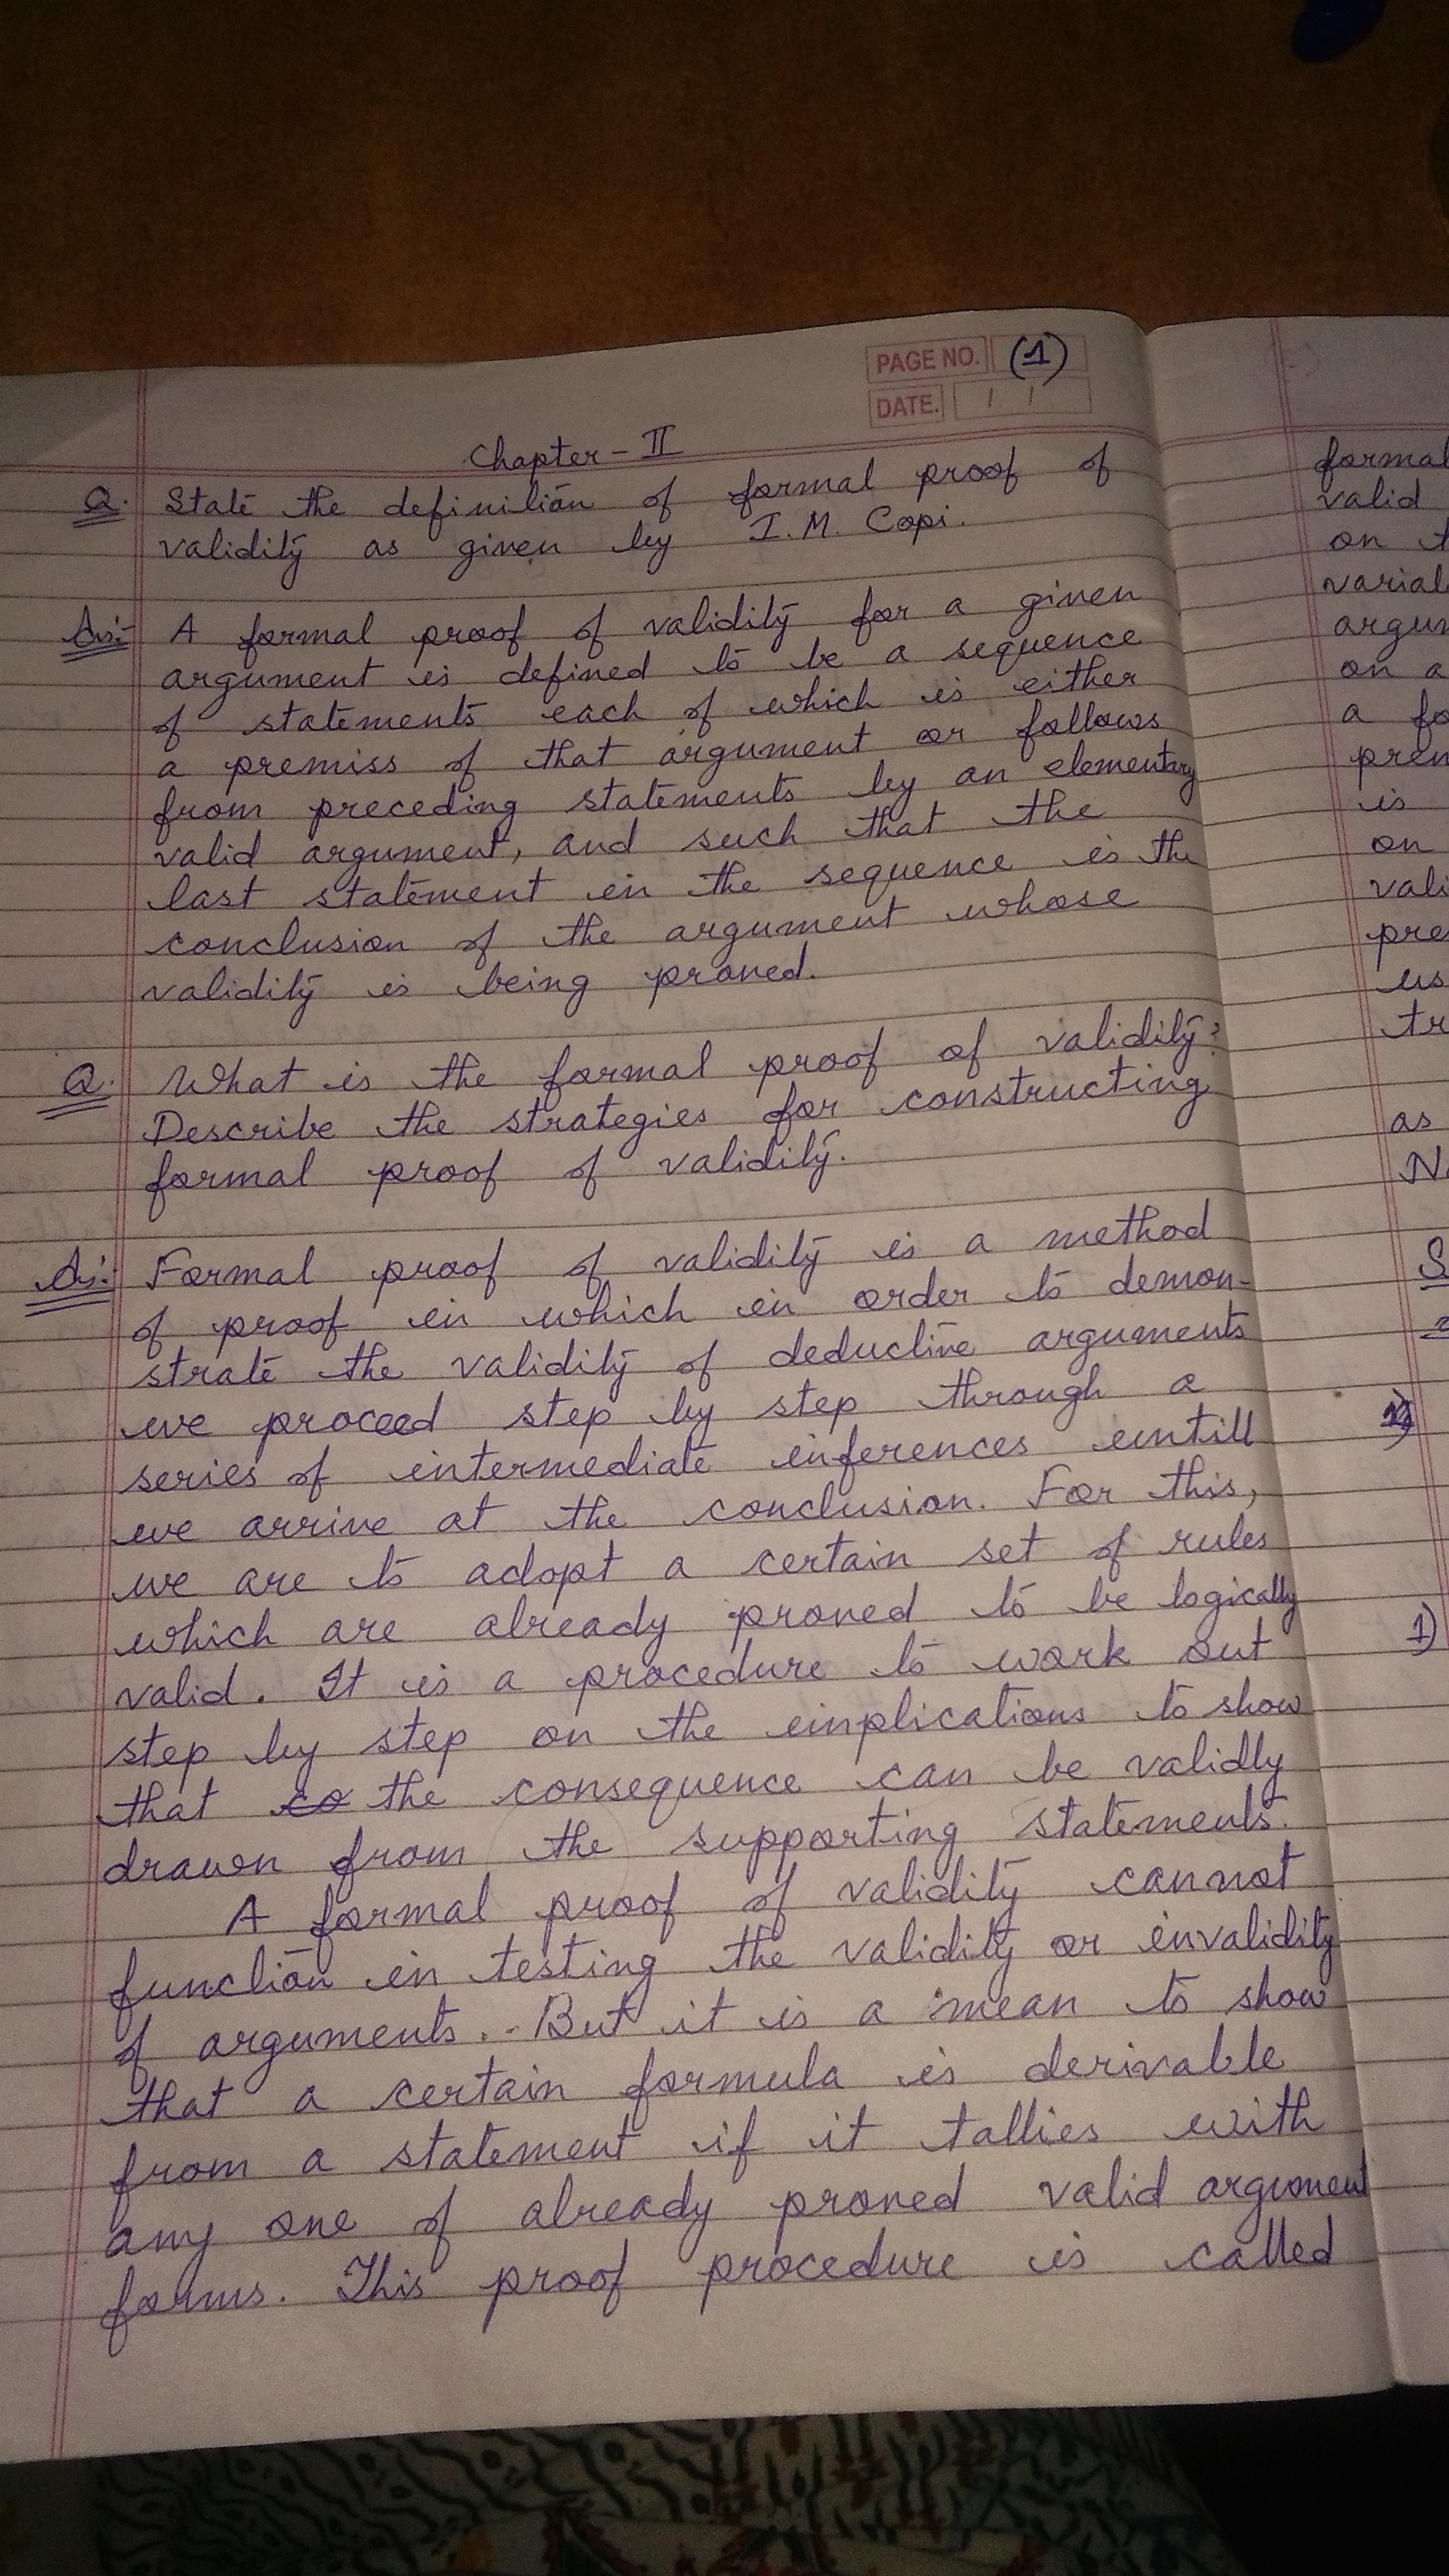 PAGE NO. (1)
DATE. / /
Chapter - II
Q. State the definition of formal proof of
validity as given by I.M. Copi.
Ans:- A formal proof of validity for a given
argument is defined to be a sequence
of statements each of which is either
a premiss of that argument or follows
from preceding statements by an elementary
valid argument, and such that the
last statement in the sequence is the
conclusion of the argument whose
validity is being proved.
Q. What is the formal proof of validity?
Describe the strategies for constructing
formal proof of validity.
As:- Formal proof of validity is a method
of proof in which in order to demon-
strate the validity of deductive arguments
we proceed step by step through a
series of intermediate inferences untill
we arrive at the conclusion. For this,
we are to adopt a certain set of rules
which are already proved to be logically
valid. It is a procedure to work out
step by step on the implications to show
that the consequence can be validly
drawn from the supporting statements.
A formal proof of validity cannot
function in testing the validity or invalidity
of arguments. But it is a mean to show
that a certain formula is derivable
from a statement if it tallies with
any one of already proved valid argument
forms. This proof procedure is called
formal
valid
on
argum
on a
a fo
prem
is
on
vali
pre
us
tr
as
1)